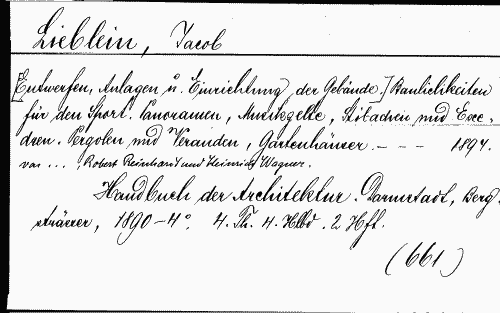 Lieblein, Jacob
[Entwerfen, Anlagen u. Einrichtung der Gebäude.] Baulichkeiten
für den Sport. Panoramen, Musikzelte, Stibadien und Exe-
dren. Pergolen und Veranden, Gartenhäuser. - - - 1894.
von ... , Robert Reinhardt und Heinrich Wagner.
Handbuch der Architektur. Darmstadt, Berg-
strässer, 1890 - 4°. 4. Th. 4. Hlbd. 2 Hft.
(661)